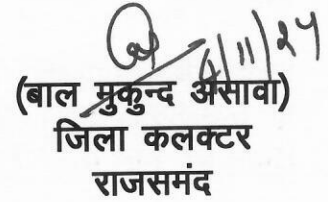 4/11/24
(बाल मुकुन्द असावा)
जिला कलक्टर
राजसमंद